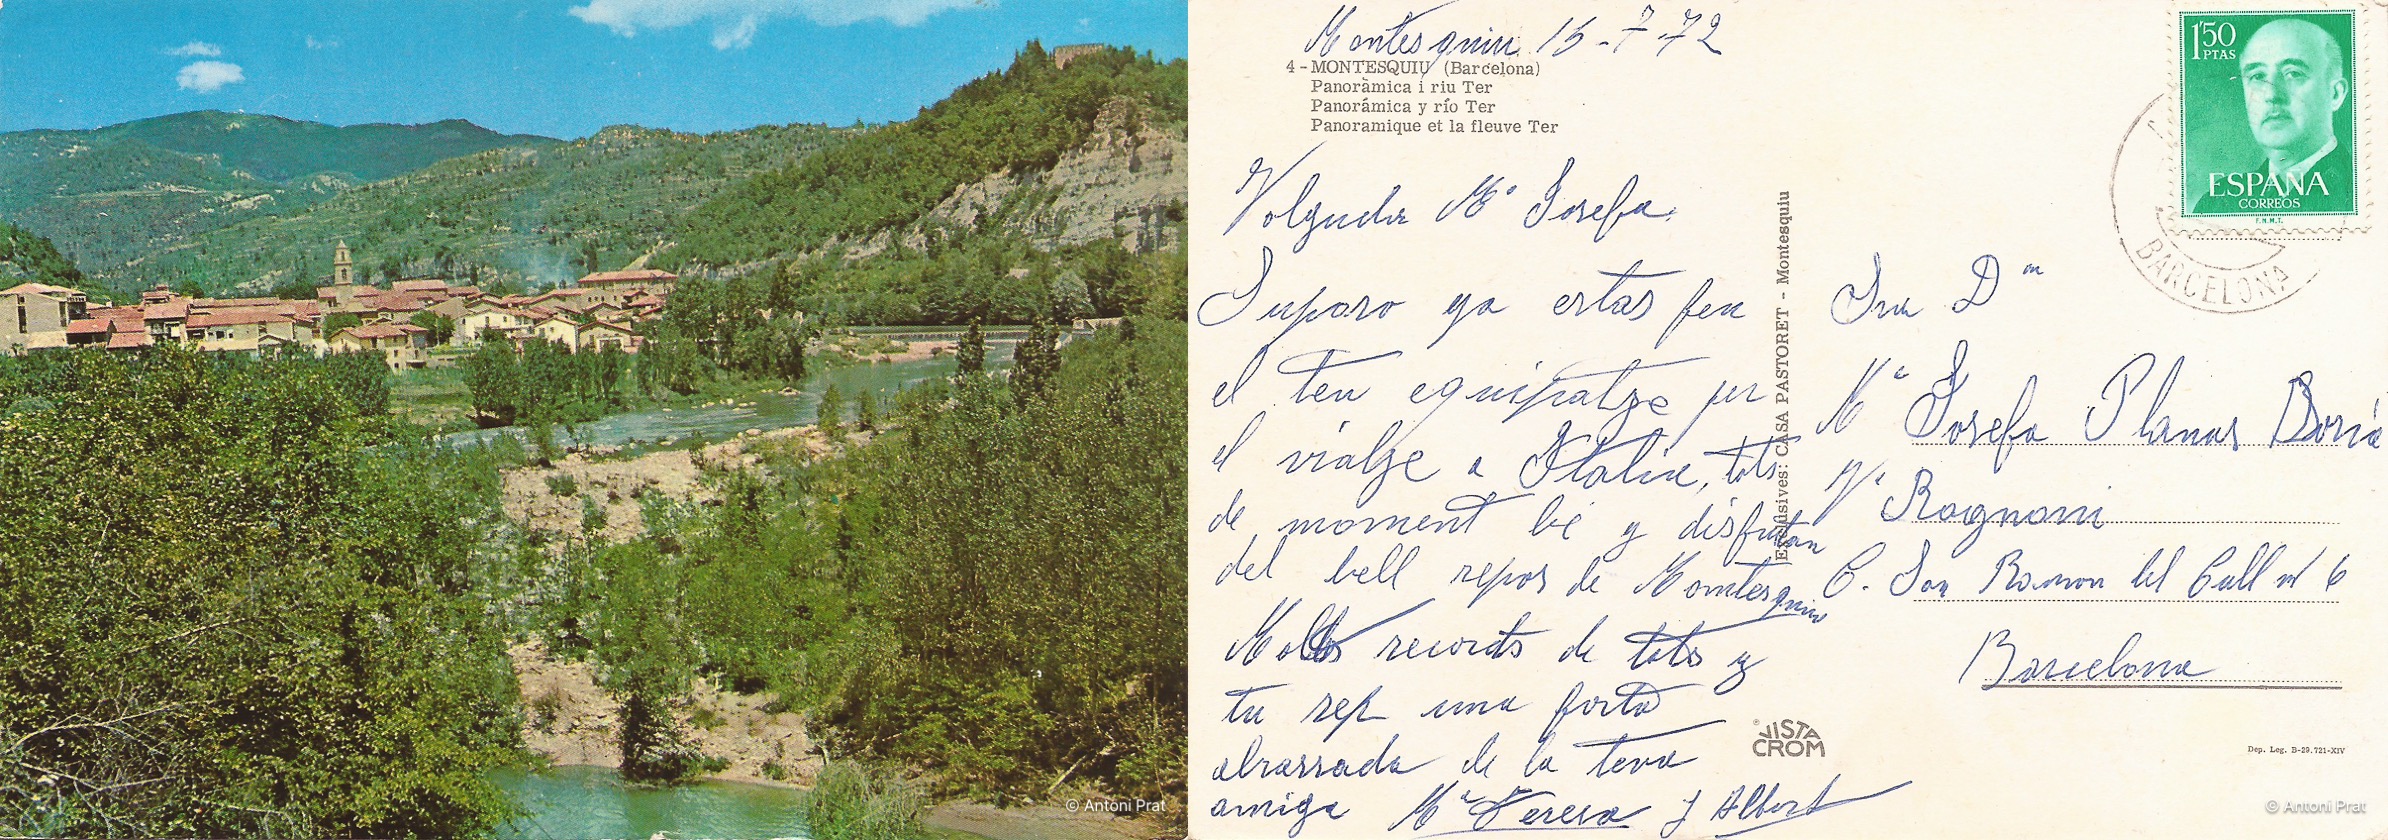 © Antoni Prat
Montesquiu 15-7-72
4 - MONTESQUIU (Barcelona)
Panoràmica i riu Ter
Panorámica y río Ter
Panoramique et la fleuve Ter
Volguda Mª Josefa.
Suposo ya estas fen
el teu equipatge per
el viatge a Italia, tots
de moment bé y disfrutan
del bell repos de Montesquiu
Molts records de tots y
tu rep una forta
abrassada de la teva
amiga Mª Teresa y Albert
Exclusives: CASA PASTORET - Montesquiu
VISTA
CROM
1'50
PTAS
ESPAÑA
CORREOS
F.N.M.T.
BARCELONA
Sra Dª
Mª Josefa Planas
Vª Rognoni
C. San Ramon del Call nº 6
Barcelona
Dep. Leg. B-29.721-XIV
© Antoni Prat